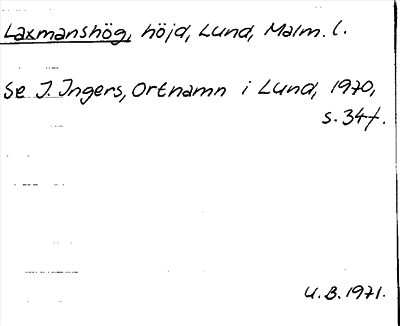 Laxmanshög, höjd, Lund, Malm. l.
Se J. Ingers, Ortnamn i Lund, 1970,
s. 34f.
U.B. 1971.